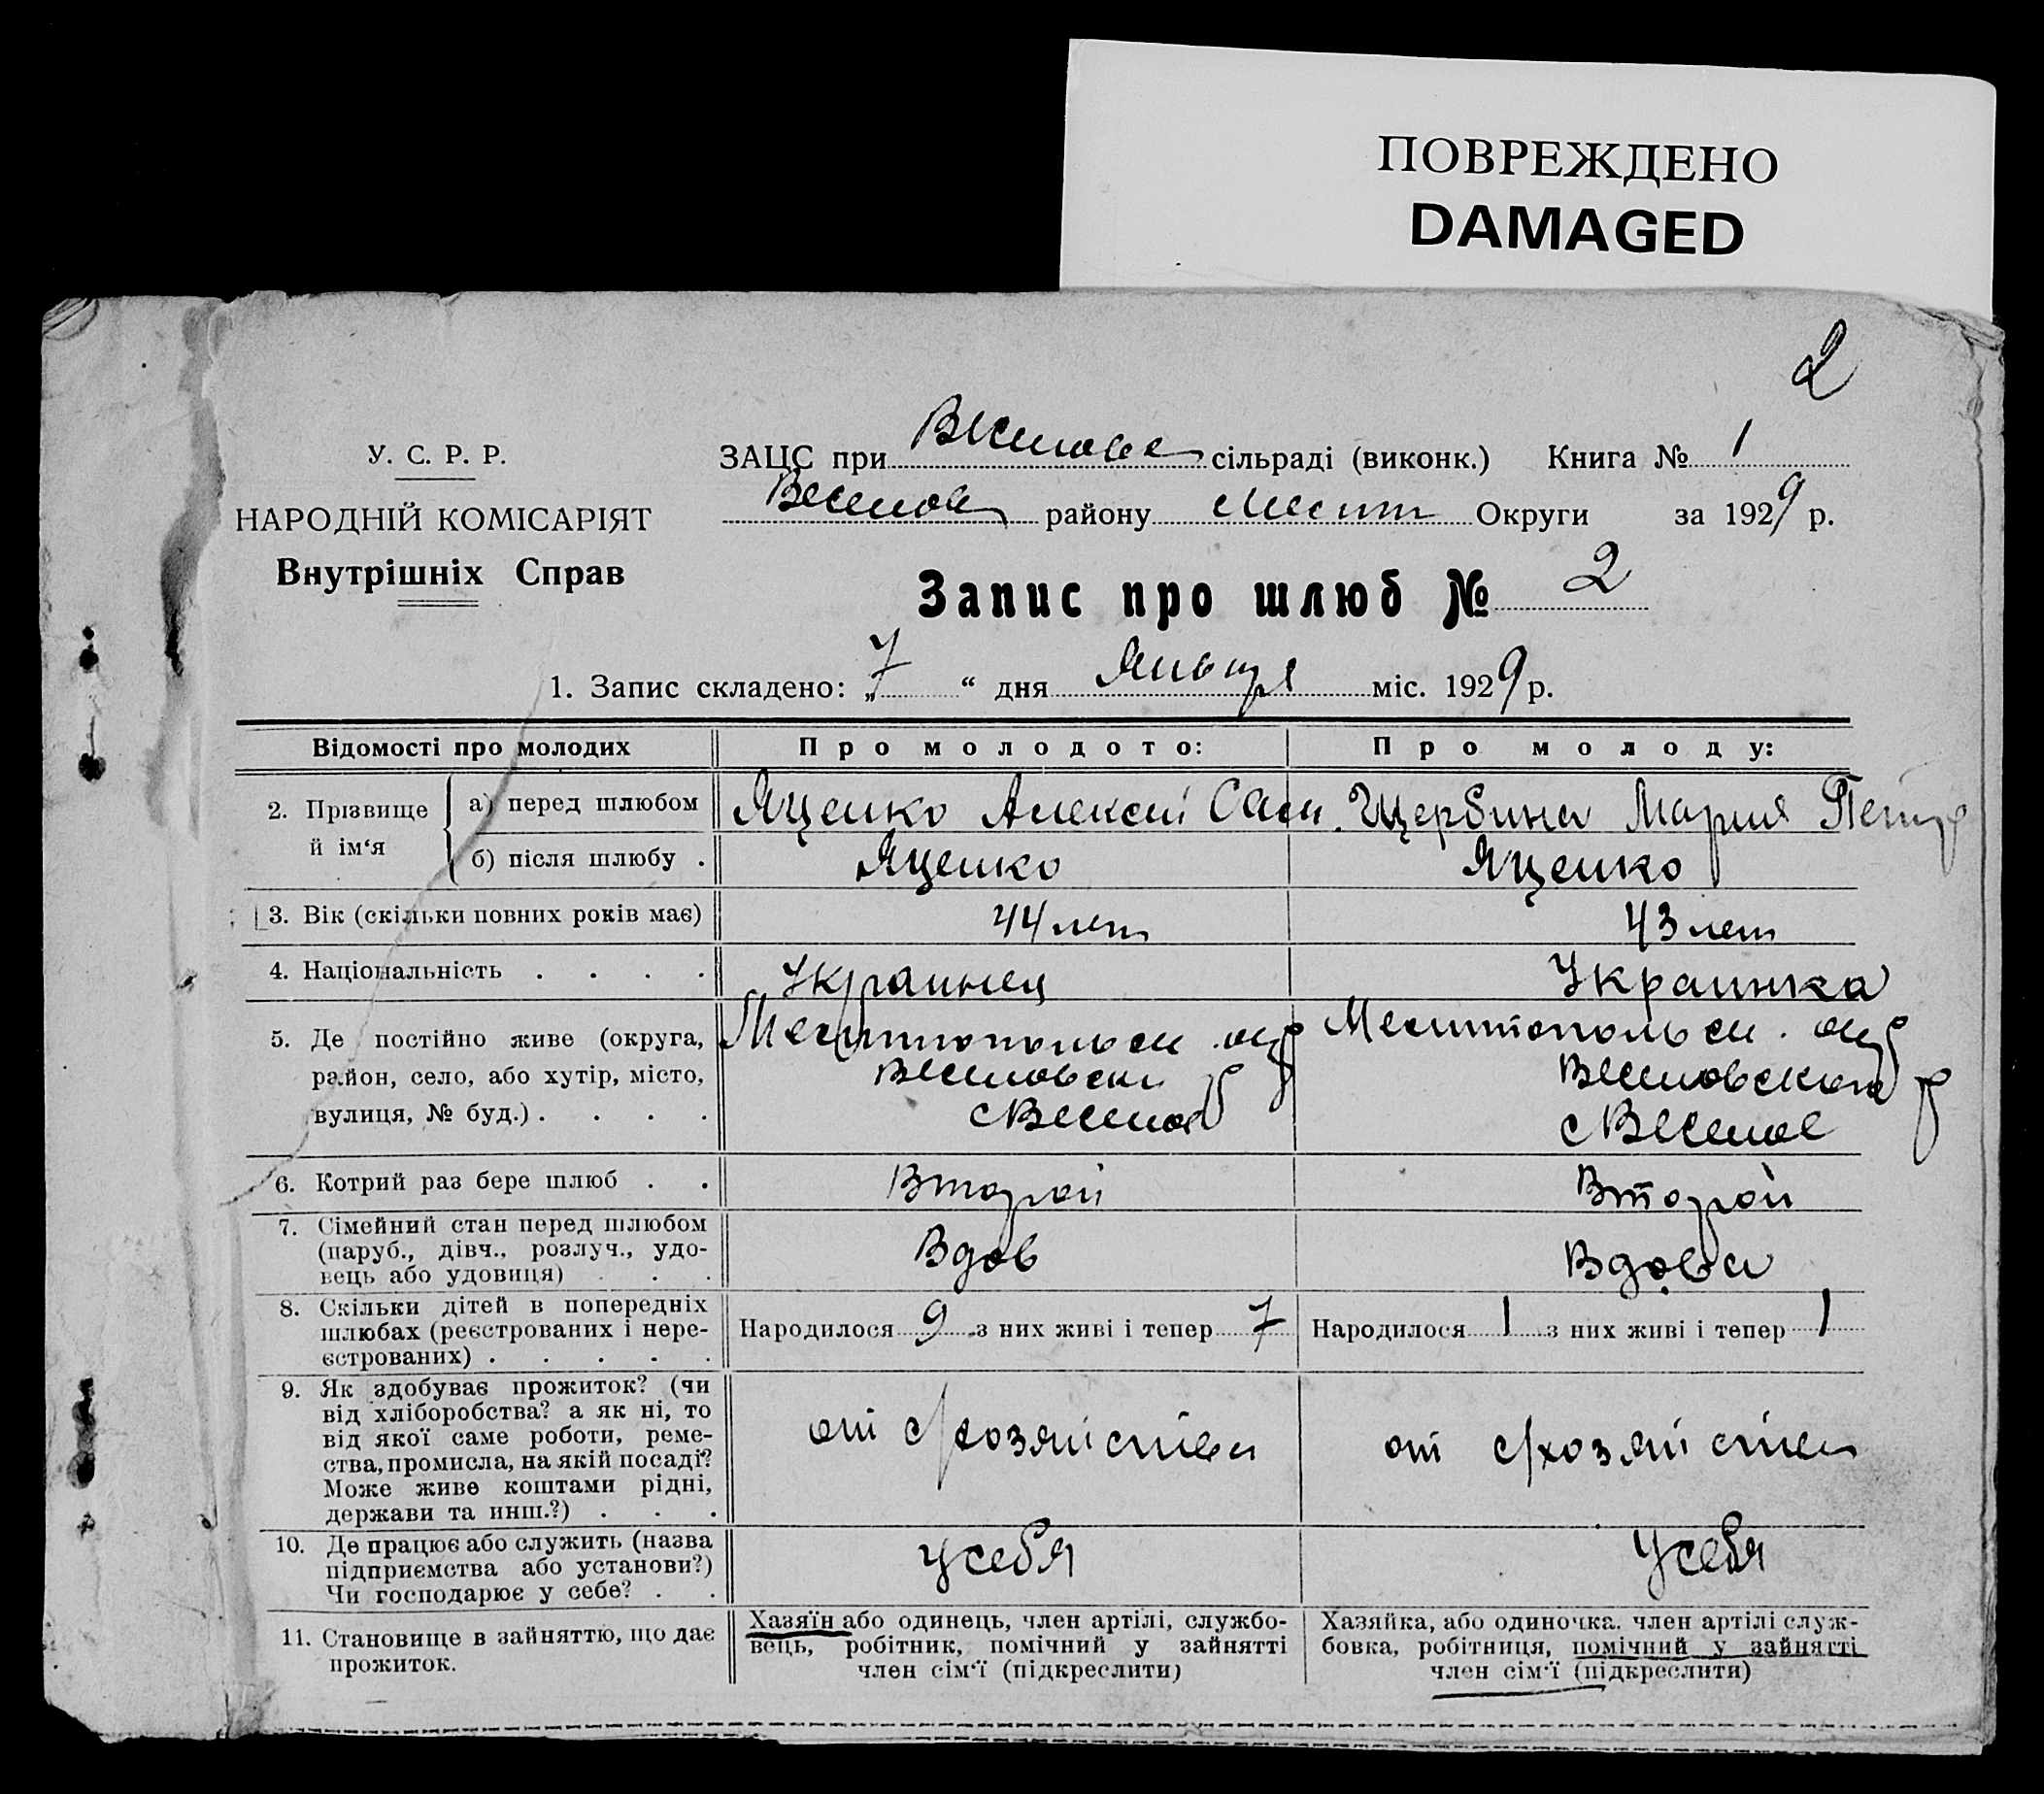 ПОВРЕЖДЕНО
DAMAGED
2
У. С. Р. Р.
НАРОДНІЙ КОМІСАРІЯТ
Внутрішніх Справ
ЗАЦС при Веселовск сільраді (виконк.) Книга № 1
Веселов району Мелит Округи за 1929 р.
Запис про шлюб № 2
1. Запис складено: „7“ дня Января міс. 1929 р.
Відомості про молодих
Про молодого:
Про молоду:
2. Прізвище й ім‘я
а) перед шлюбом
Яценко Алексей Сам.
Щербина Мария Петр
б) після шлюбу .
Яценко
Яценко
3. Вік (скільки повних років має)
44 лет
43 лет
4. Національність . . . .
Украинец
Украинка
5. Де постійно живе (округа,
район, село, або хутір, місто,
вулиця, № буд.) . . . .
Мелитопольск. окр
Веселовск р
с Веселое
Мелитопольск. окр
Веселовского р
с Веселое
6. Котрий раз бере шлюб . .
Второй
Второй
7. Сімейний стан перед шлюбом
(паруб., дівч., розлуч., удо-
вець або удовиця) . . .
Вдов
Вдова
8. Скільки дітей в попередніх
шлюбах (реєстрованих і нере-
єстрованих) . . . . .
Народилося 9 з них живі і тепер 7
Народилося 1 з них живі і тепер 1
9. Як здобуває прожиток? (чи
від хліборобства? а як ні, то
від якої саме роботи, реме-
ства, промисла, на якій посаді?
Може живе коштами рідні,
держави та инш.?) . . .
от с/хозяйства
от с/хозяйства
10. Де працює або служить (назва
підприємства або установи?)
Чи господарює у себе? . .
у себя
у себя
11. Становище в зайняттю, що дає
прожиток.
Хазяїн або одинець, член артілі, службо-
вець, робітник, помічний у зайнятті
член сім‘ї (підкреслити)
Хазяйка, або одиночка. член артілі служ-
бовка, робітниця, помічний у зайнятті
член сім‘ї (підкреслити)